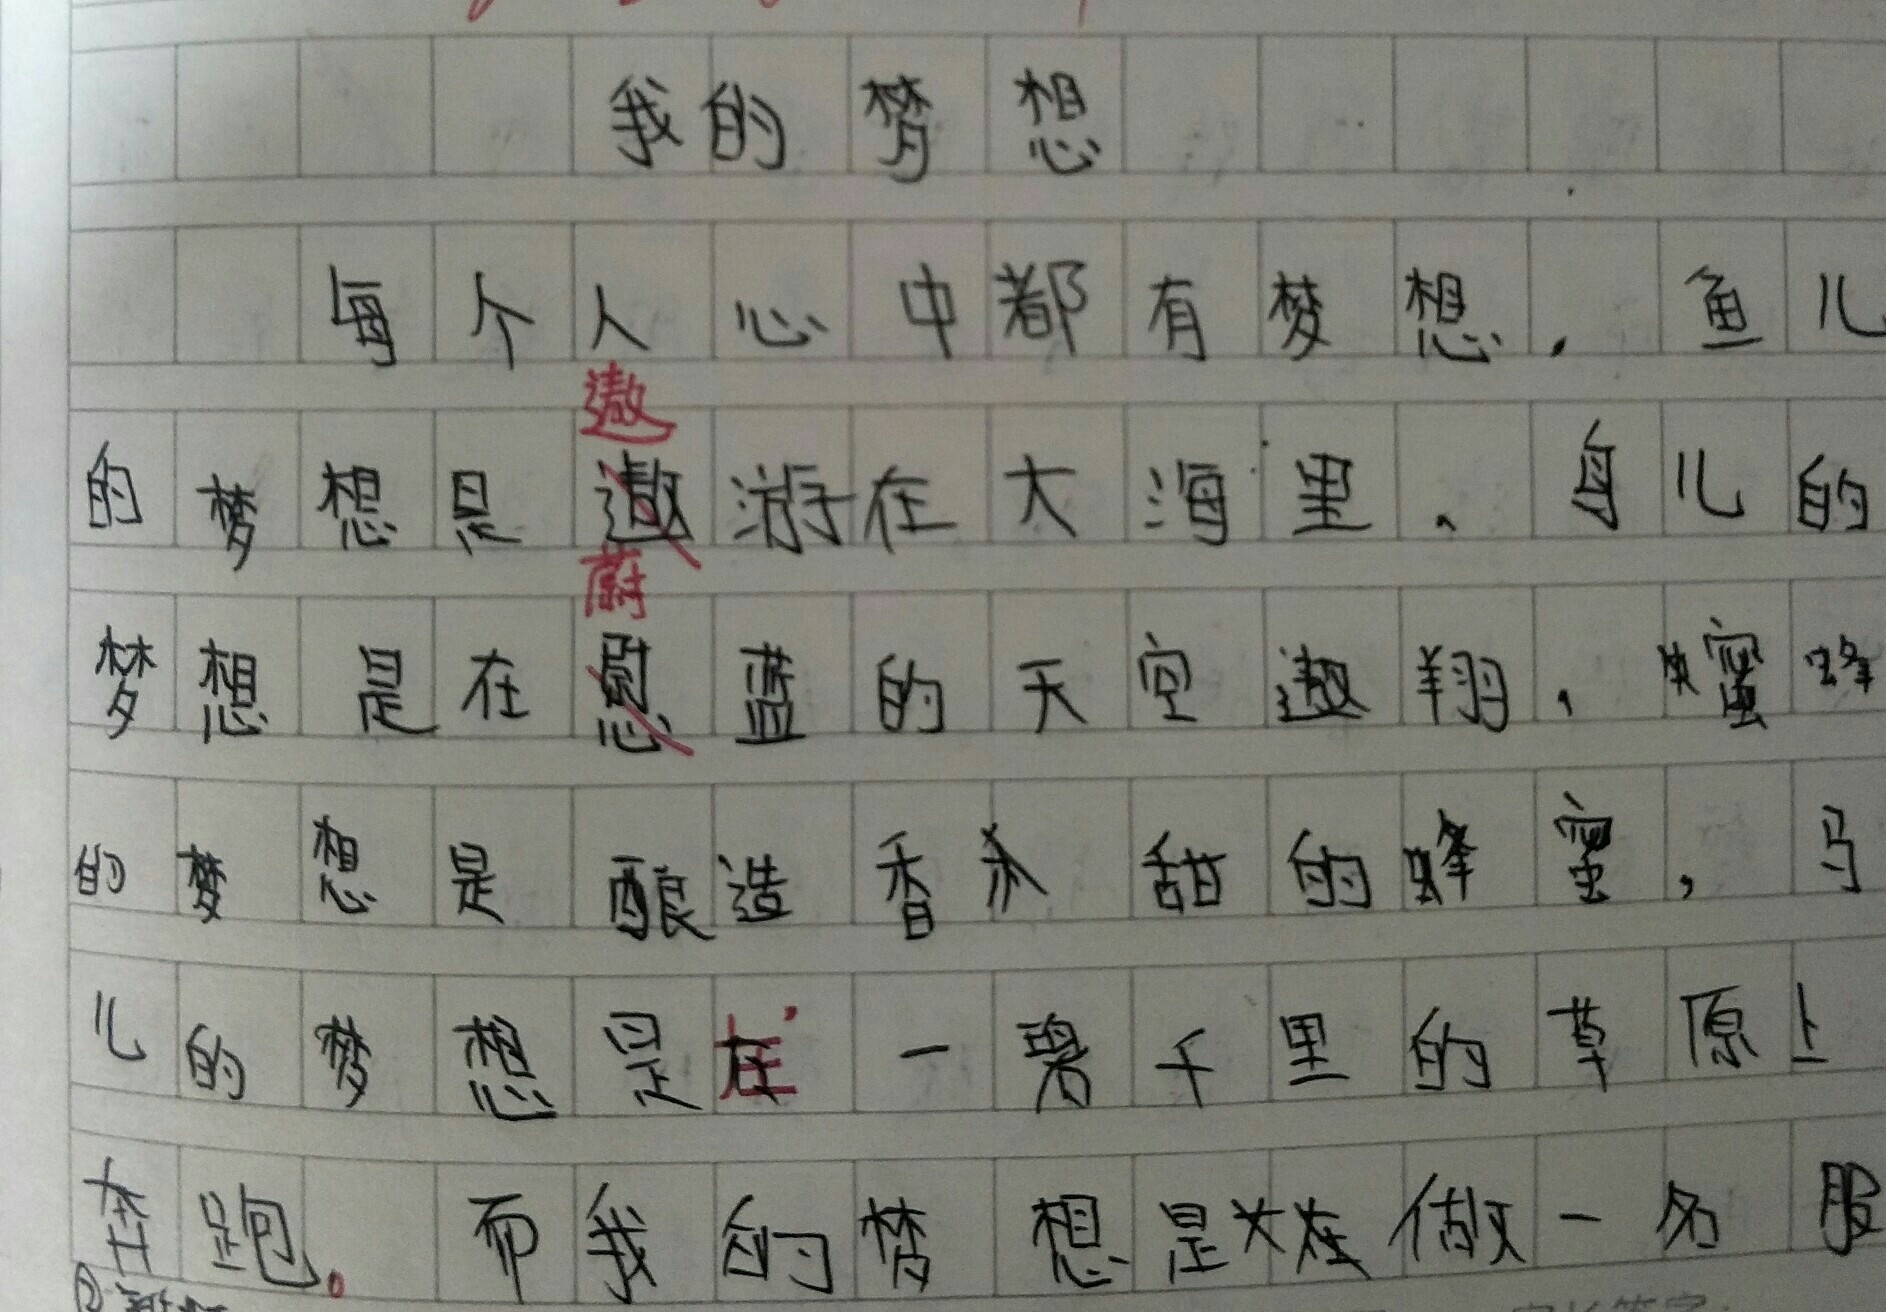 我的梦想
每个人心中都有梦想,鱼儿
遨
的梦想是遨游在大海里,鸟儿的
蔚
梦想是在慰蓝的天空遨翔,蜜蜂
的梦想是酿造香甜的蜂蜜,马
儿的梦想是在一碧千里的草原上
奔跑。而我的梦想是做一名服